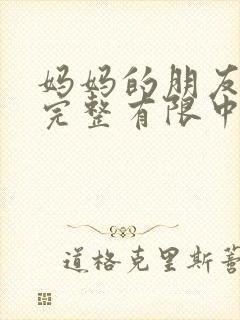 妈妈的朋友
完整有限中
道格克里斯蒂